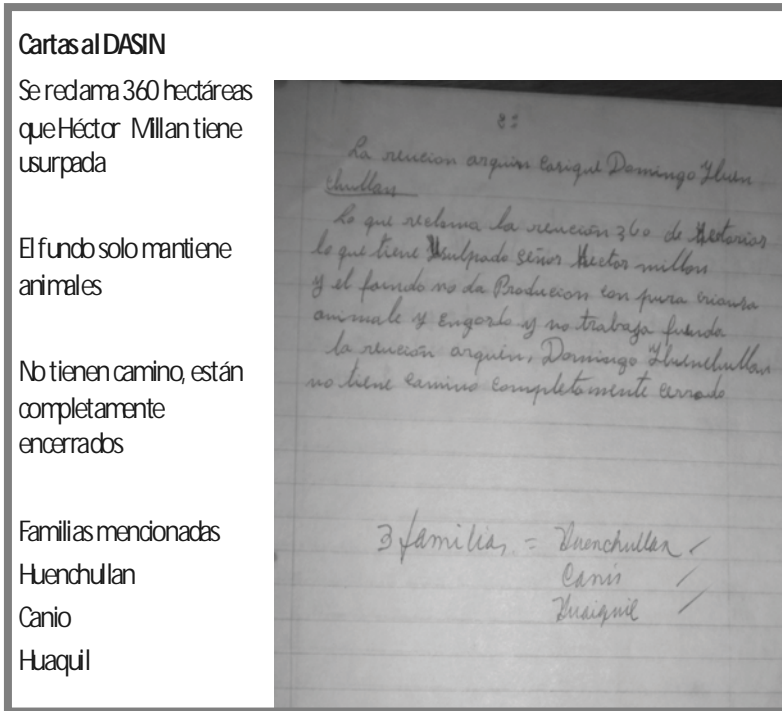 Cartas al DASIN
Se reclama 360 hectáreas
que Héctor Millan tiene
usurpada
El fundo solo mantiene
animales
No tienen camino, están
completamente
encerrados
Familias mencionadas
Huenchullan
Canio
Huaquil
La reucion arquin Casique Domingo Huen
chullan
Lo que reclama la reucion 360 de Hectarias
lo que tiene Usulpado señor Hector millan
y el foundo no da Producion con pura crianza
animale y Engordo y no trabaja fundo
la reucion arquin, Domingo Huenchullan
no tiene camino completamente cerrado
3 familias = Huenchullan
Canio
Huaiquil